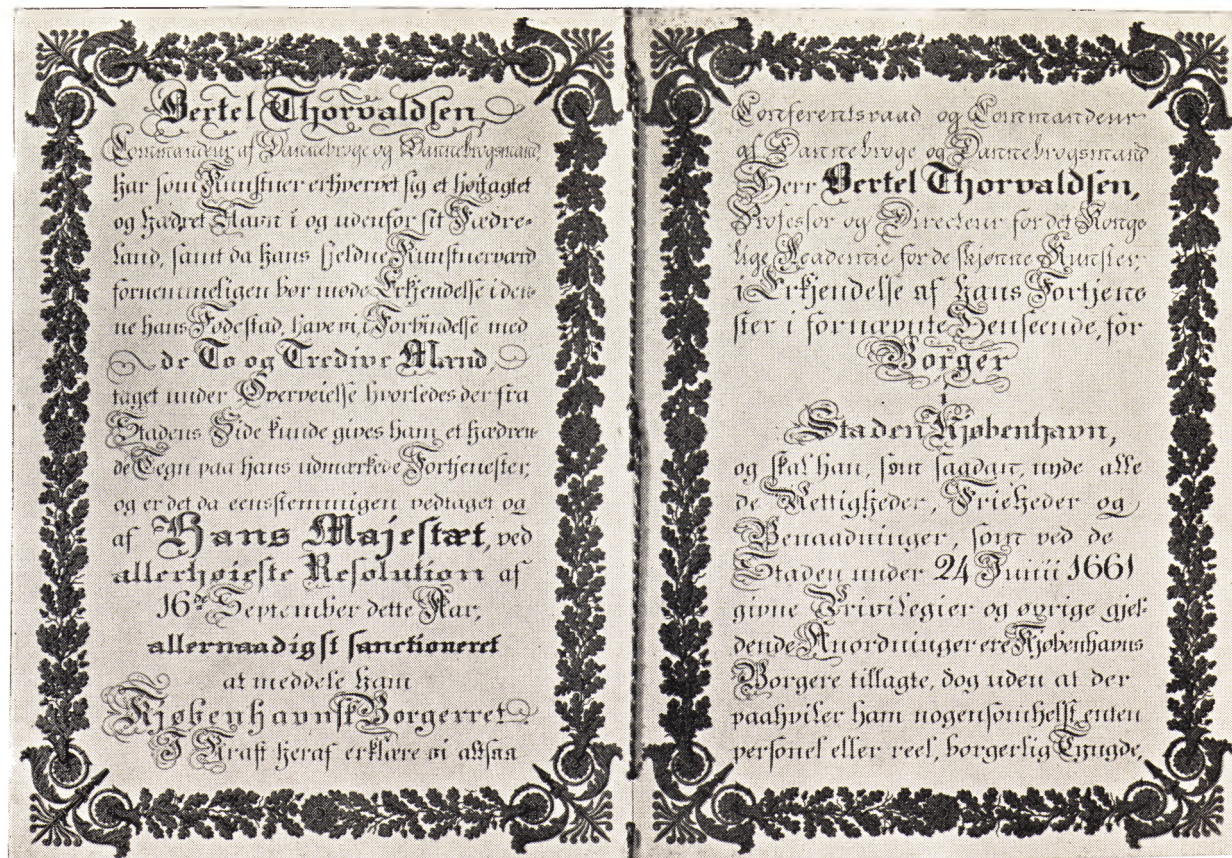 Bertel Thorvaldsen,
Commandeur af Dannebroge og Dannebrogsmand,
har som Kunstner erhvervet sig et høitagtet
og hædret Navn i og udenfor sit Fædre-
land, samt da hans sjeldne Kunstnerværd
fornemmeligen bør møde Erkjendelse i den-
ne hans Fødestad, have vi, i Forbindelse med
de To og Tredive Mænd,
taget under Overveielse hvorledes der fra
Stadens Side kunde gives ham et hædren-
de Tegn paa hans udmærkede Fortjenester,
og er det da eensstemmigen vedtaget og
af Hans Majestæt, ved
allerhøieste Resolution af
16de September dette Aar,
allernaadigst sanctioneret
at meddele ham
Kjøbenhavnsk Borgerret.
I Kraft heraf erklære vi altsaa
Conferentsraad og Commandeur
af Dannebroge og Dannebrogsmand
Herr Bertel Thorvaldsen,
Professor og Directeur for det Konge
lige Academie for de skjønne Kunster,
i Erkjendelse af hans Fortjene
ster i fornævnte Henseende, for
Borger
i
Staden Kjøbenhavn,
og skal han, som saadan, nyde alle
de Rettigheder, Friheder og
Benaadninger, som ved de
Staden under 24 Junii 1661
givne Privilegier og øvrige gjel-
dende Anordninger ere Kjøbenhavns
Borgere tillagte, dog uden at der
paahviler ham nogensomhelst, enten
personel eller reel, borgerlig Tyngde,